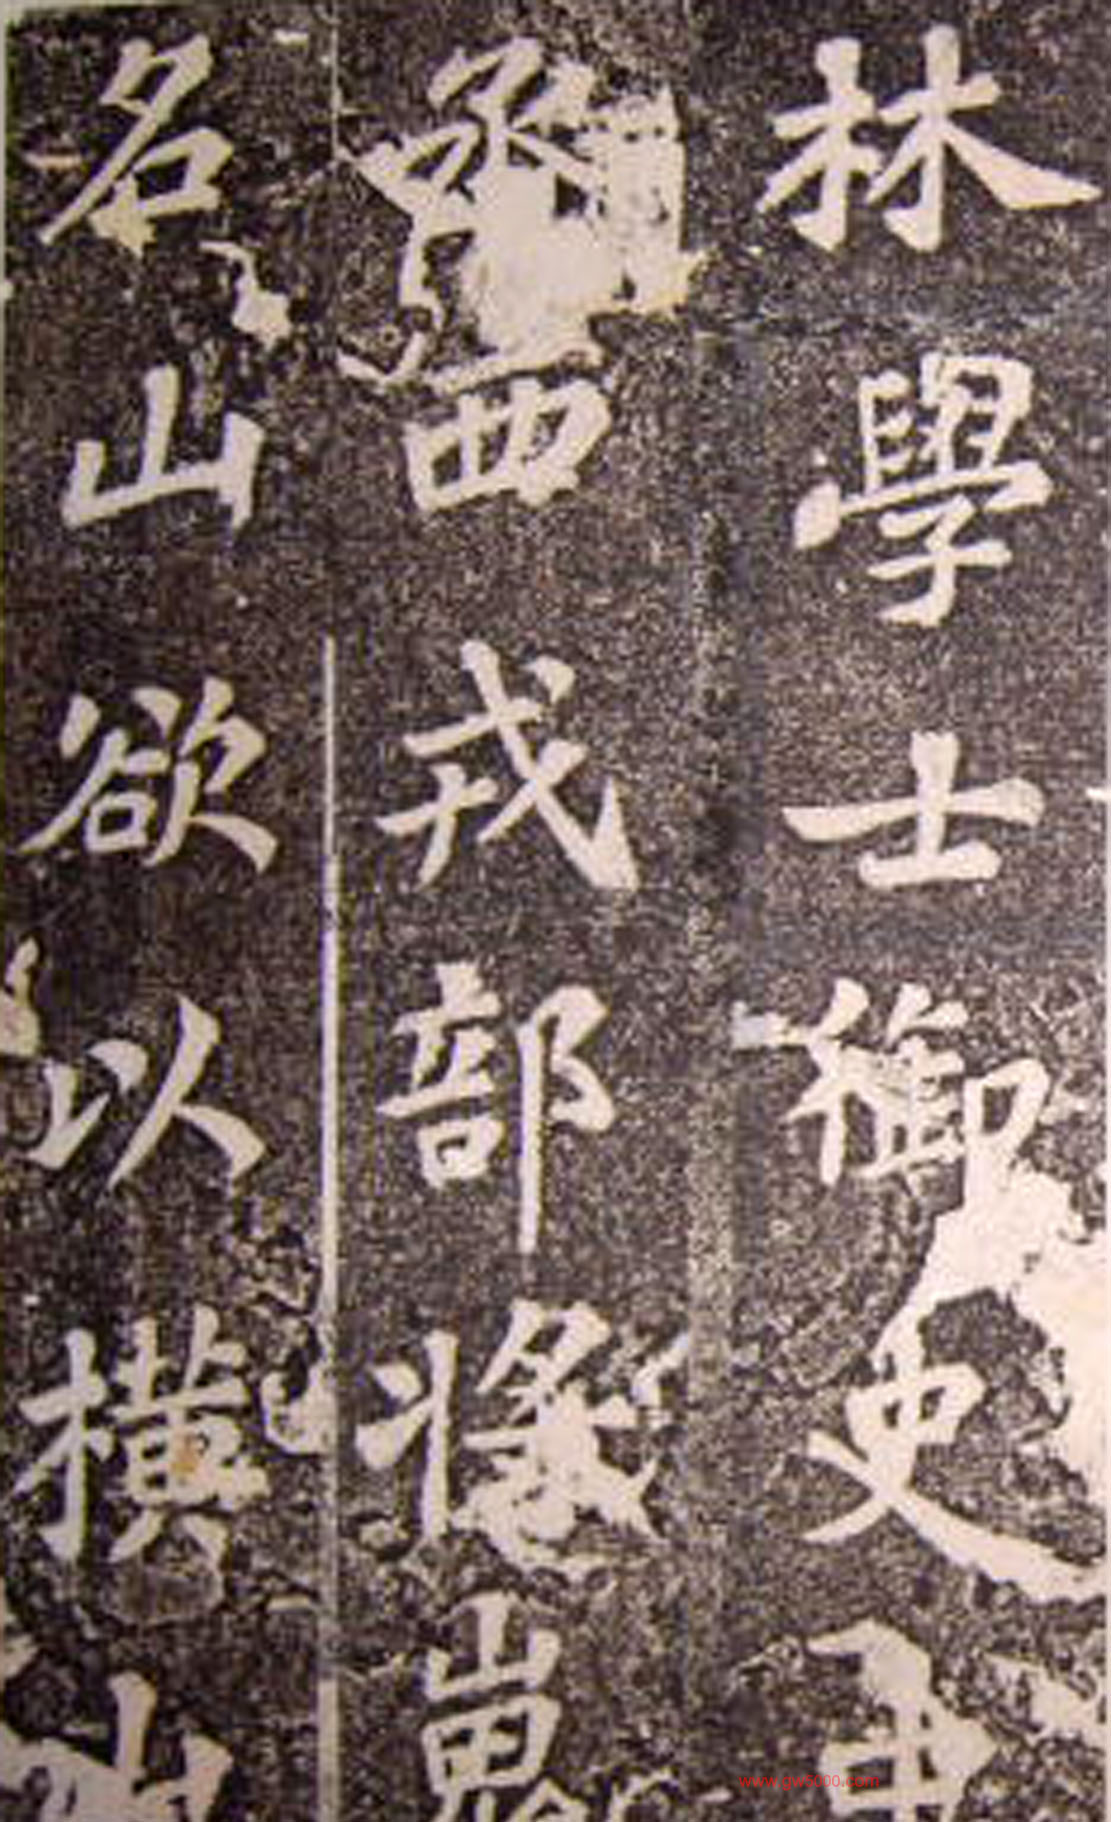 林學士御史中
丞西戎部將嵬
名山欲以橫山
www.gw5000.com